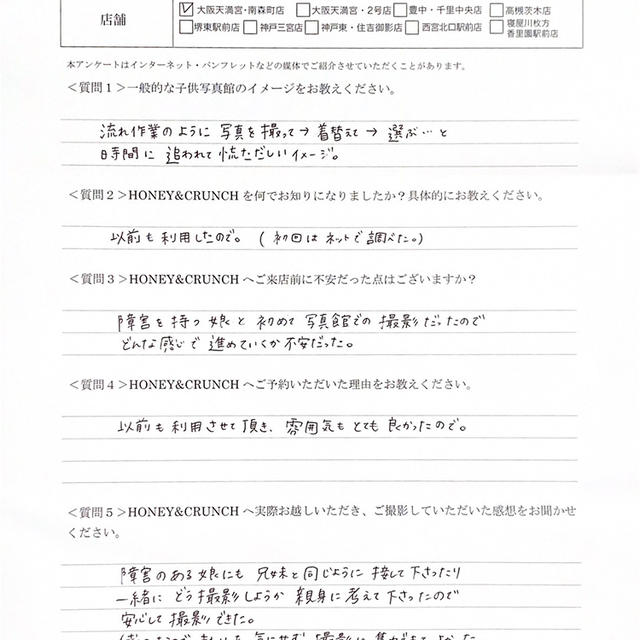 店舗
☑大阪天満宮・南森町店 □大阪天満宮・2号店 □豊中・千里中央店 □高槻茨木店
□堺東駅前店 □神戸三宮店 □神戸東・住吉御影店 □西宮北口駅前店 □寝屋川枚方香里園駅前店
本アンケートはインターネット・パンフレットなどの媒体でご紹介させていただくことがあります。
＜質問１＞一般的な子供写真館のイメージをお教えください。
流れ作業のように 写真を撮って→着替えて→ 選ぶ…と
時間に 追われて慌ただしいイメージ。
＜質問２＞HONEY&CRUNCH を何でお知りになりましたか？具体的にお教えください。
以前も利用したので。(初回はネットで調べた。)
＜質問３＞HONEY&CRUNCH へご来店前に不安だった点はございますか？
障害を持つ娘と初めて写真館での撮影だったので
どんな感じで進めていくか不安だった。
＜質問４＞HONEY&CRUNCH へご予約いただいた理由をお教えください。
以前も利用させて頂き、雰囲気もとても良かったので。
＜質問５＞HONEY&CRUNCH へ実際お越しいただき、ご撮影していただいた感想をお聞かせ
ください。
障害のある娘にも兄妹と同じように接して下さったり
一緒にどう撮影しようか親身に考えて下さったので
安心して撮影できた。